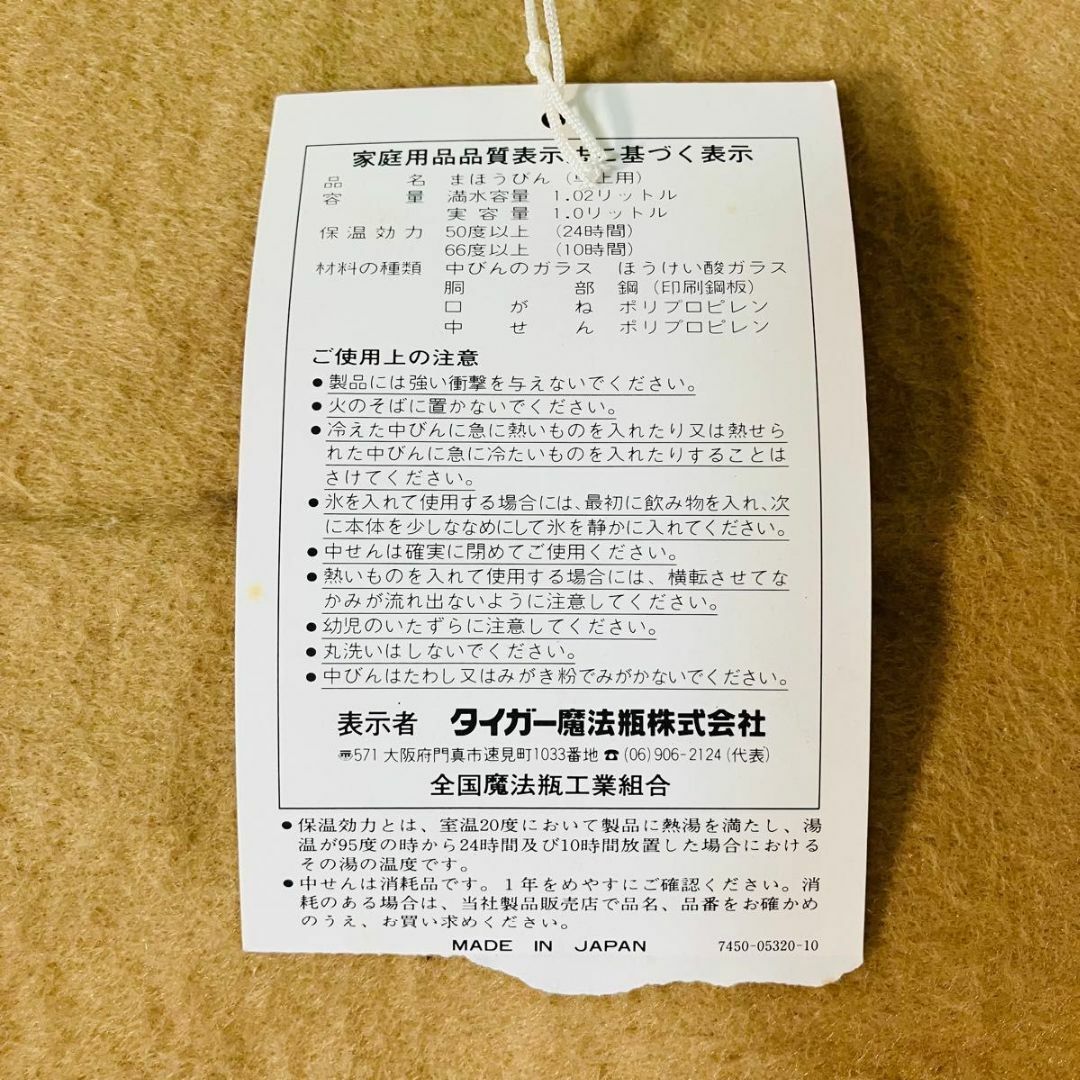 家庭用品品質表示法に基づく表示
品名 まほうびん（卓上用）
容量 満水容量 1.02リットル
実容量 1.0リットル
保温効力 50度以上 （24時間）
66度以上 （10時間）
材料の種類 中びんのガラス ほうけい酸ガラス
胴部 鋼（印刷鋼板）
口がね ポリプロピレン
中せん ポリプロピレン
ご使用上の注意
●製品には強い衝撃を与えないでください。
●火のそばに置かないでください。
●冷えた中びんに急に熱いものを入れたり又は熱せら
れた中びんに急に冷たいものを入れたりすることは
さけてください。
●氷を入れて使用する場合には、最初に飲み物を入れ、次
に本体を少しななめにして氷を静かに入れてください。
●中せんは確実に閉めてご使用ください。
●熱いものを入れて使用する場合には、横転させてな
かみが流れ出ないように注意してください。
●幼児のいたずらに注意してください。
●丸洗いはしないでください。
●中びんはたわし又はみがき粉でみがかないでください。
表示者 タイガー魔法瓶株式会社
〠571 大阪府門真市速見町1033番地 ☎(06)906-2124(代表)
全国魔法瓶工業組合
●保温効力とは、室温20度において製品に熱湯を満たし、湯
温が95度の時から24時間及び10時間放置した場合における
その湯の温度です。
●中せんは消耗品です。1年をめやすにご確認ください。消
耗のある場合は、当社製品販売店で品名、品番をお確かめ
のうえ、お買い求めください。
MADE IN JAPAN 7450-05320-10